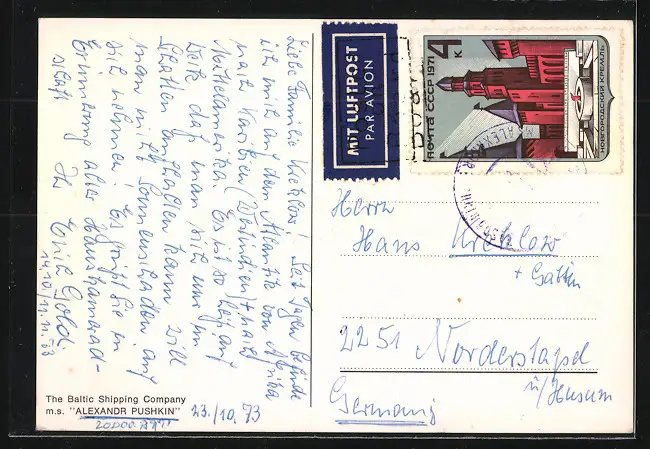 Liebe Familie Krehlow! Seit Tagen befinde
ich mich auf dem Atlantik von Afrika
nach Karibien (Westindien) + nach
Mittelamerika. Es ist so heiß auf
Deck daß man sich nur im
Schatten aufhalten kann. Will
man mit Sonnenbaden auf
sich nehmen. Es grüßt Sie in
Erinnerung alter Hauskamerad-
schaft Ihr Erich Gold.
The Baltic Shipping Company
m.s. "ALEXANDR PUSHKIN"
20000
23./10. 73
MIT LUFTPOST
PAR AVION
4 к
ПОЧТА СССР 1971
НОВГОРОДСКИЙ КРЕМЛЬ
Herrn
Hans Krehlow
+ Gattin
2251 Norderstapel
ü/Husum
Germany